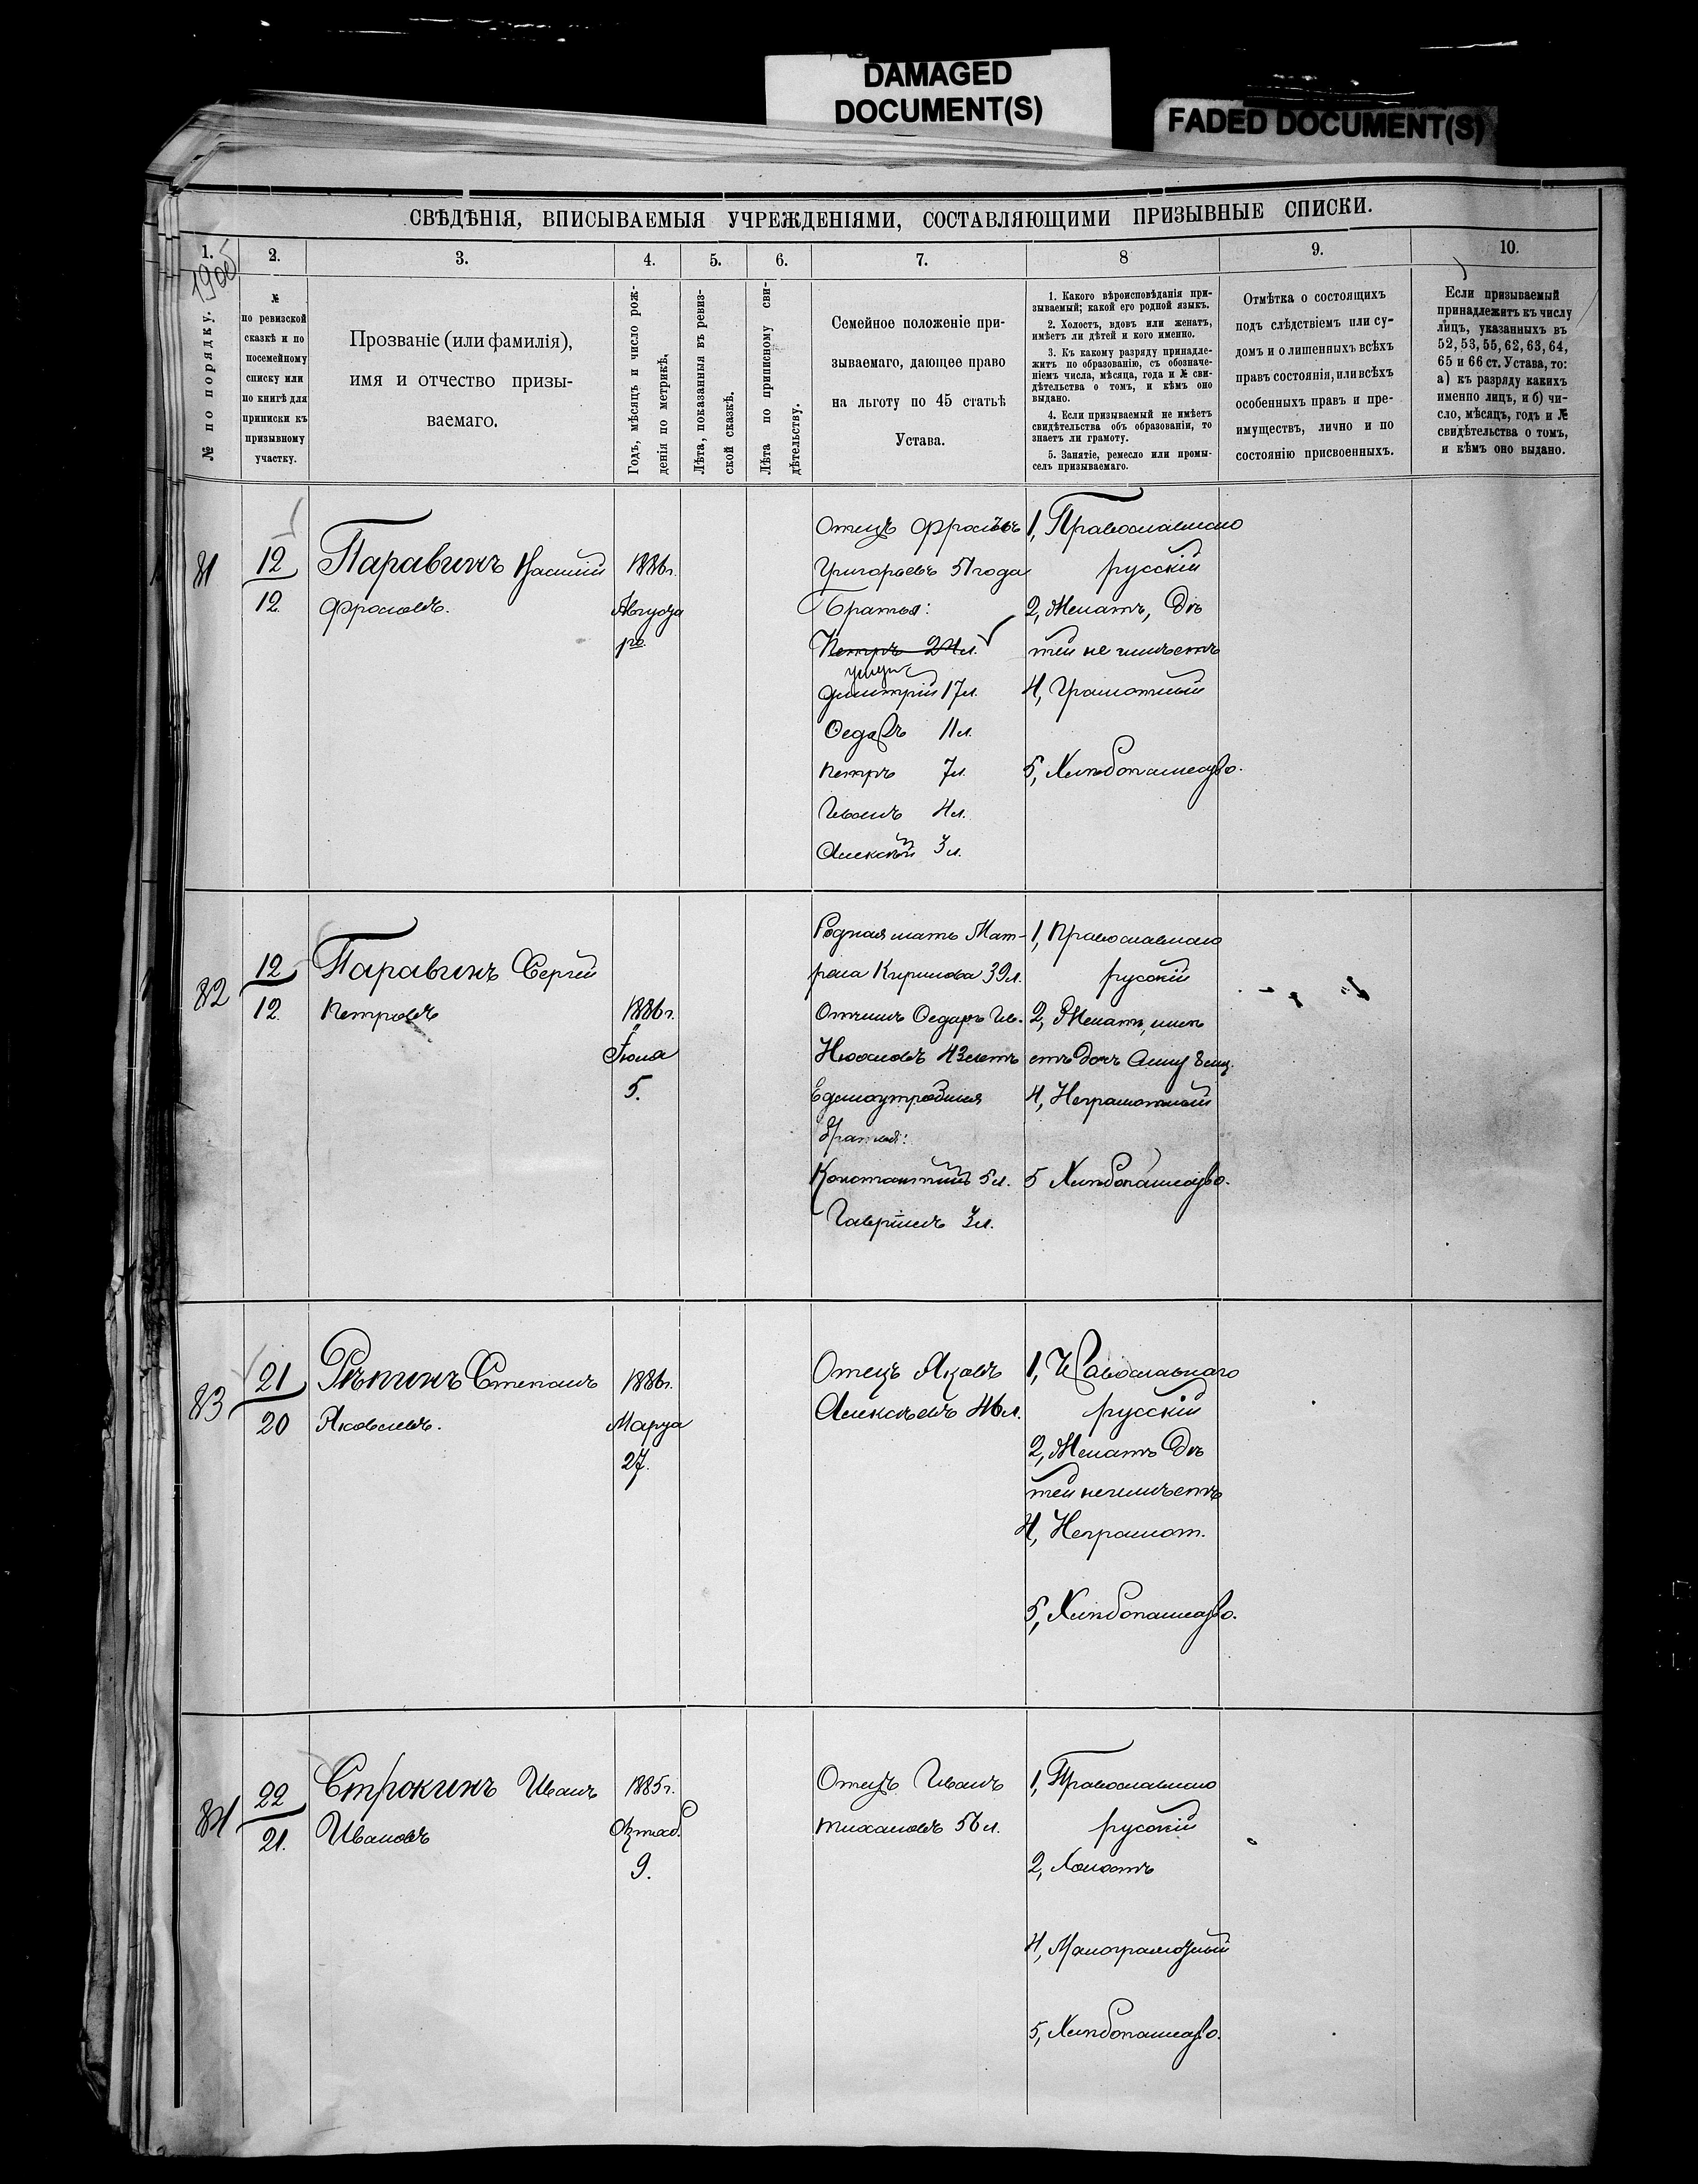 DAMAGED
DOCUMENT(S)
FADED DOCUMENT(S)
СВѢДѢНІЯ, ВПИСЫВАЕМЫЯ УЧРЕЖДЕНІЯМИ, СОСТАВЛЯЮЩИМИ ПРИЗЫВНЫЕ СПИСКИ.
1.
2.
3.
4.
5.
6.
7.
8
9.
10.
№ по порядку.
№
по ревизской
сказкѣ и по
посемейному
списку или
по книгѣ для
приписки къ
призывному
участку.
Прозваніе (или фамилія),
имя и отчество призы-
ваемаго.
Годъ, мѣсяцъ и число рож-
денія по метрикѣ.
Лѣта, показанныя въ ревиз-
ской сказкѣ.
Лѣта по приписному сви-
дѣтельству.
Семейное положеніе при-
зываемаго, дающее право
на льготу по 45 статьѣ
Устава.
1. Какого вѣроисповѣданія при-
зываемый; какой его родной языкъ.
2. Холостъ, вдовъ или женатъ,
имѣетъ ли дѣтей и кого именно.
3. Къ какому разряду принадле-
житъ по образованію, съ обозначе-
ніемъ числа, мѣсяца, года и № сви-
дѣтельства о томъ, и кѣмъ оно
выдано.
4. Если призываемый не имѣетъ
свидѣтельства объ образованіи, то
знаетъ ли грамоту.
5. Занятіе, ремесло или промы-
селъ призываемаго.
Отмѣтка о состоящихъ
подъ слѣдствіемъ или су-
домъ и о лишенныхъ всѣхъ
правъ состоянія, или всѣхъ
особенныхъ правъ и пре-
имуществъ, лично и по
состоянію присвоенныхъ.
Если призываемый
принадлежитъ къ числу
лицъ, указанныхъ въ
52, 53, 55, 62, 63, 64,
65 и 66 ст. Устава, то:
а) къ разряду какихъ
именно лицъ, и б) чи-
сло, мѣсяцъ, годъ и №
свидѣтельства о томъ,
и кѣмъ оно выдано.
81
12
12.
Паравинъ Василій
Фроловъ.
1886г.
Августа
1го.
Отецъ Фролъ
Григорьевъ 51 года
Братья:
Петръ 24л.
Димитрій 17л.
Ѳедоръ 11л.
Петръ 7л.
Иванъ 4л.
Алексѣй 3л.
1, Православнаго
русскій
2, Женатъ, дѣ
тей не имѣетъ
4, Грамотный
5, Хлѣбопашество.
82
12
12.
Паравинъ Сергѣй
Петровъ
1886г.
Іюля
5.
Родная мать Мат-
рена Кирилова 39л.
Отчимъ Ѳедоръ Ив.
43 лѣтъ
Единоутробныя
Братья:
Константинъ 5л.
Гавріилъ 3л.
1, Православнаго
русскій
2, Женатъ, имѣ
етъ дочь Анну 8 мц.
4, Неграмотный
5 Хлѣбопашество.
83
21
20
Рѣпинъ Степанъ
Яковлевъ.
1886г.
Марта
27.
Отецъ Яковъ
Алексѣевъ 46л.
1, Православнаго
русскій
2, Женатъ дѣ
тей неимѣетъ
4, Неграмот.
5, Хлѣбопашество.
84
22
21.
Строкинъ Иванъ
Ивановъ
1885г.
Октяб.
9.
Отецъ Иванъ
Тихановъ 56л.
1, Православнаго
русскій
2, Холостъ
4, Малограмотный
5, Хлѣбопашество.